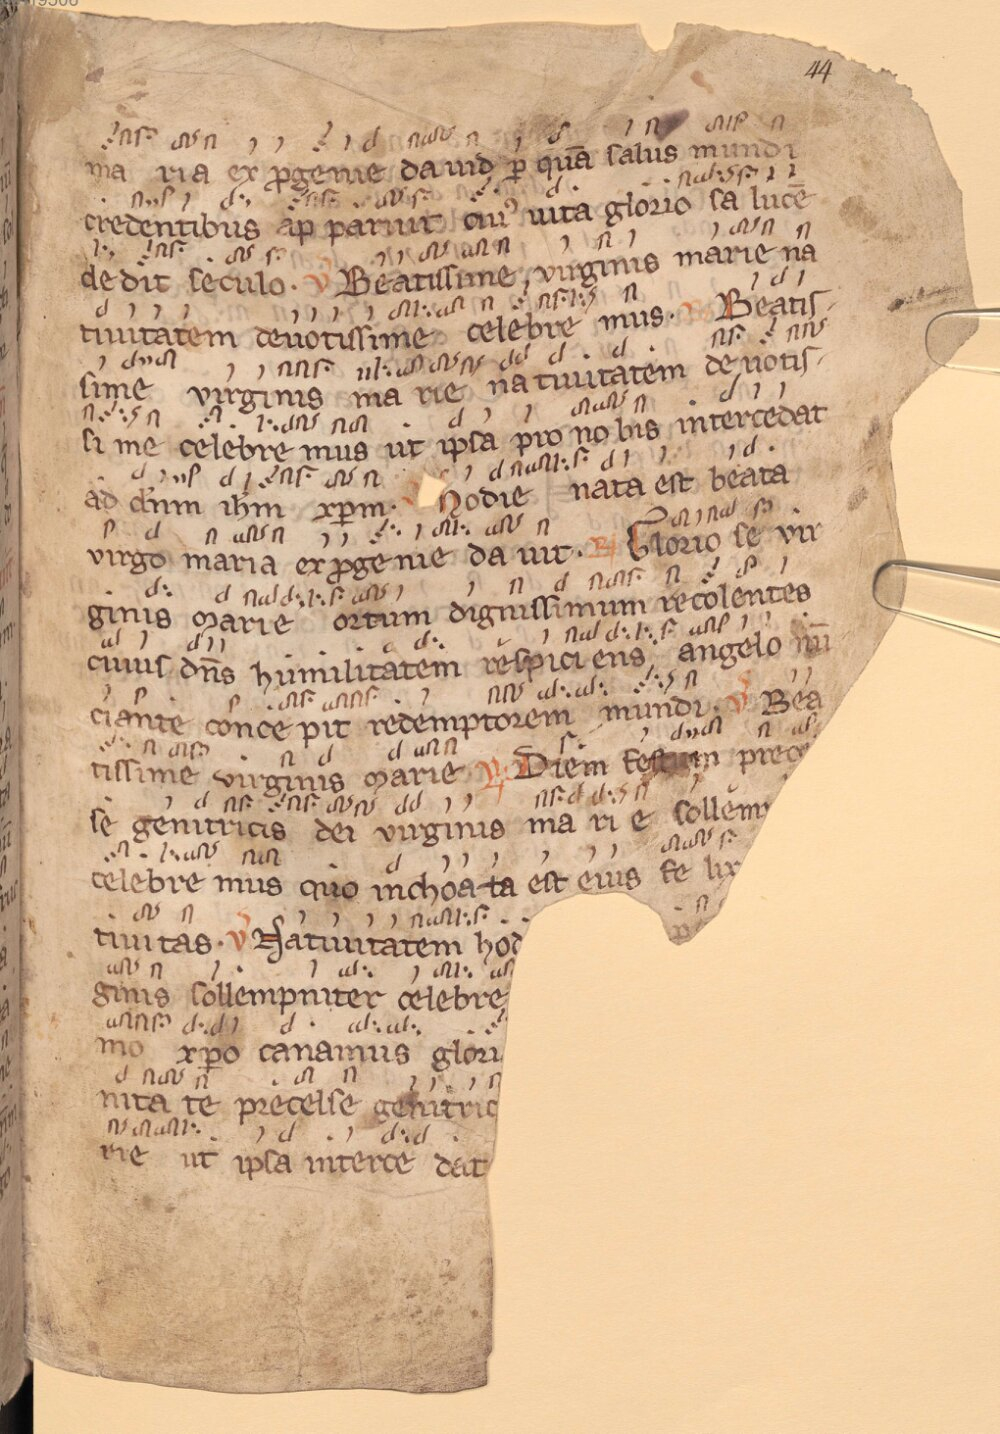 44
ma ria ex ꝓgenie dauid ꝑ quā salus mundi
credentibus ap paruit cuiꝰ uita glorio sa lucē
dedit seculo. v Beatissime virginis marie na
tiuitatem deuotissime celebre mus. Beatis
sime virginis ma rie na tiuitatem deuotis
si me celebre mus ut ipsa pro no bis intercedat
ad dn̄m ihm xpm. Hodie nata est beata
virgo maria ex ꝓge nie da uit. R Glorio se vir
ginis Marie ortum dignissimum recolentes
cuius dn̄s humilitatem respiciens angelo nū
ciante conce pit redemptorem mundi. v Bea
tissime virginis Marie R Diem festum prece
se genitricis dei virginis ma ri e sollemp
celebre mus quo inchoa ta est eius fe lix
tiuitas. v Natiuitatem hod
ginis sollempniter celebre
mo xpo canamus glori
nita te precelse genitric
rie ut ipsa interce dat